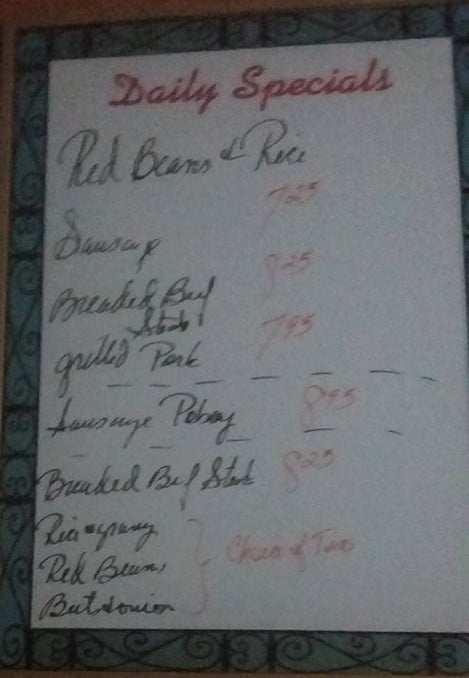 Daily Specials
Red Beans & Rice
7.25
Sausage
8.25
Breaded Beef
Steak
7.95
grilled Pork
Sausage Poboy 8.95
Breaded Beef Steak 8.25
Rice & gravy
Red Beans
Choice of Two
Beet & onion